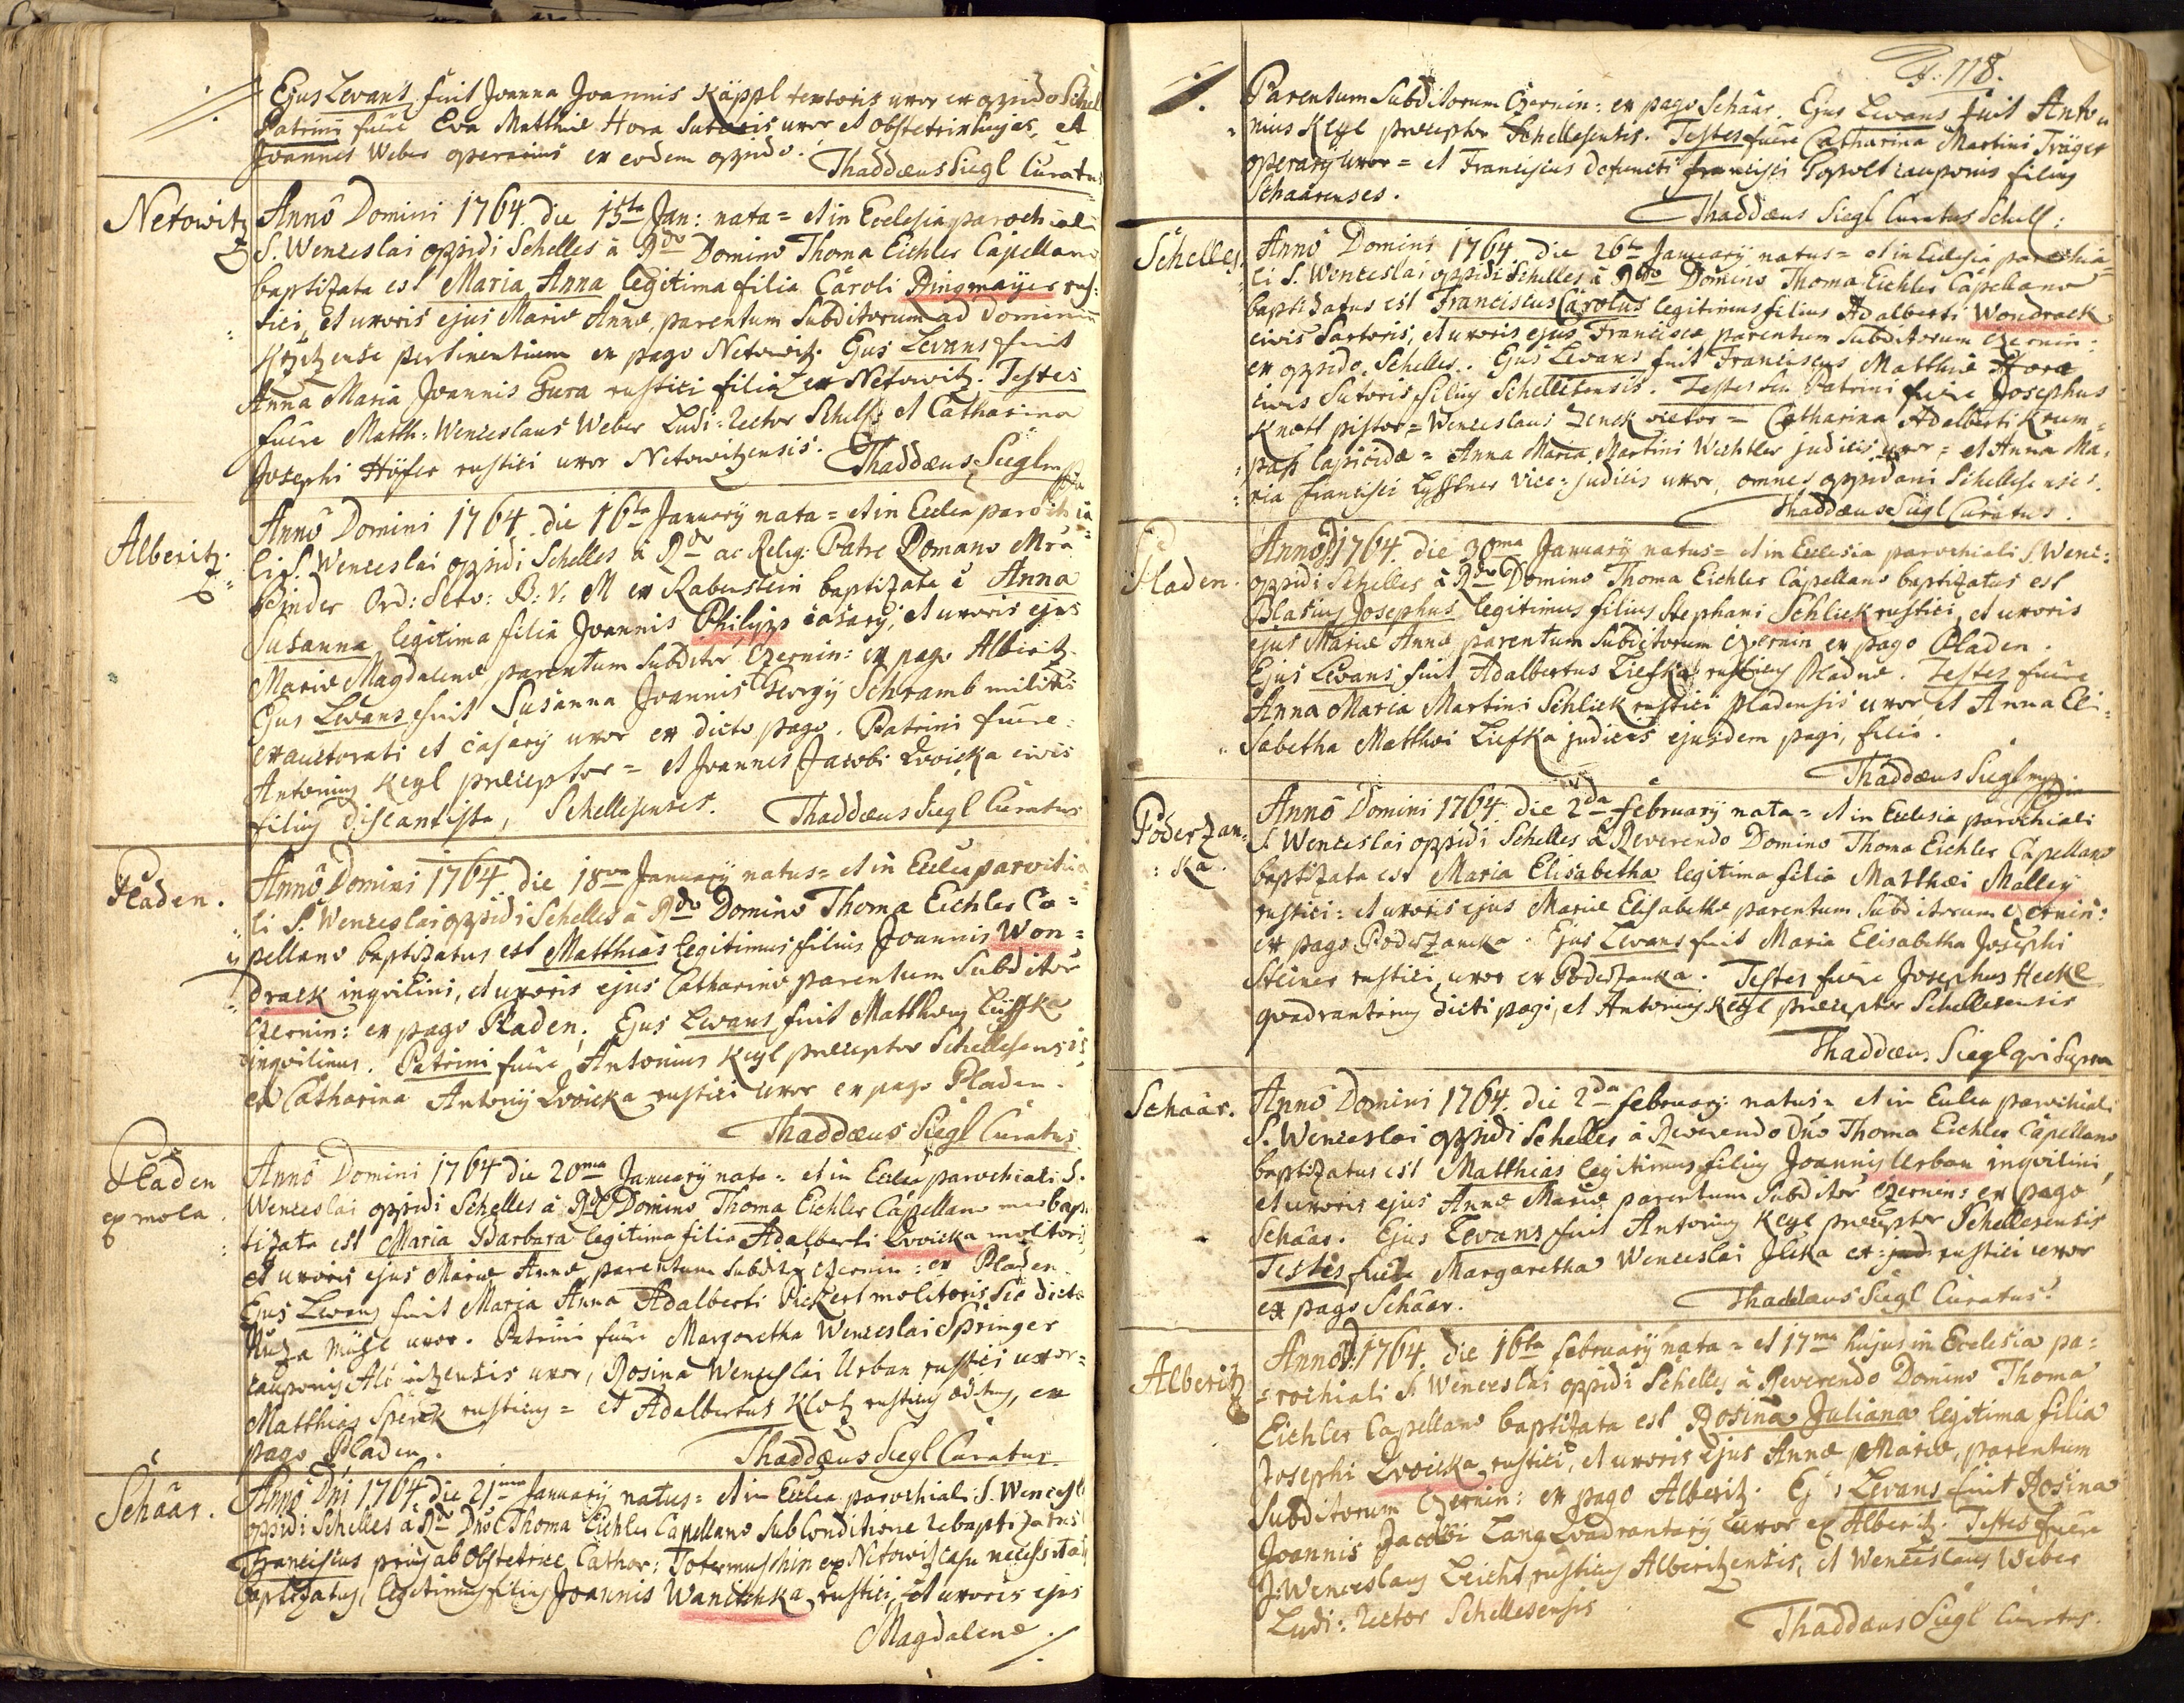 Ejus Levans fuit Joanna Joannis Käppl textoris uxor ex oppido Schel
Patrini fuêre Eva Matthiæ Hora Sutoris uxor et obstetrix hujas, et
Joannes Weber operarius ex eodem oppido.
Thaddæus Siegl Curatus
Netowitz
Anno Domini 1764 die 15ta Jan: nata = et in Ecclesia parochiali
S. Wenceslai oppidi Schelles à Rdo Domino Thoma Eichler Capellano
baptizata est Maria Anna legitima filia Caroli Ringmaÿer rus-
tici, et uxoris ejus Mariæ Annæ, parentum Subditorum ad Dominiũ
pertinentium ex pago Netowitz. Ejus Levans fuit
Anna Maria Joannis Gura rustici filia ex Netowitz. Testes
fuêre Matth: Wenceslaus Weber Ludi-rector Schelles: et Catharina
Josephi Höfer rustici uxor Netowitzensis.
Thaddæus Siegl mpp
Alberitz
Anno Domini 1764 die 16ta Januarÿ nata = et in Ecclia parochia
li S. Wenceslai oppidi Schelles à Rdo ac Relig: Patre Romano
Binder Ord: Serv: B: V: M ex Rabenstein baptizata ẽ Anna
Susanna legitima filia Joannis Philipp casarÿ, et uxoris ejus
Mariæ Magdalenæ parentum Subditor, Czernin: ex pago Alberitz.
Ejus Levans fuit Susanna Joannis Georgÿ Schramb militis
exauctorati et casarÿ uxor ex dicto pago. Patrini fuêre:
Antonius Keyl præceptor = et Joannes Jacobi Zwoicka civis
filius discantista, Schellesenses.
Thaddæus Siegl Curatus
Pladen.
Anno Domini 1764 die 18va Januarÿ natus = et in Ecclia parochia
li S. Wenceslai oppidi Schelles à Rdo Domino Thoma Eichler Ca=
pellano baptizatus est Matthias legitimus filius Joannis Won=
drack inqvilini, et uxoris ejus Catharinæ parentum Subditor
Czernin: ex pago Pladen. Ejus Levans fuit Matthæus Lieffka
inqvilinus. Patrini fuêre Antonius Keyl præceptor Schellesensis
et Catharina Antonÿ Zwoicka rustici uxor ex pago Pladen.
Thaddæus Siegl Curatus
Pladen
ex mola.
Anno Domini 1764 die 20ma Januarÿ nata = et in Ecclia parochiali S.
Wenceslai oppidi Schelles à Rdo Domino Thoma Eichler Capellano bap
tizata est Maria Barbara legitima filia Adalberti Zwoicka molitoris
et uxoris ejus Mariæ Annæ parentum Subdit: Czernin: ex Pladen.
Ejus Levans fuit Maria Anna Adalberti Pickert molitoris sic dictæ
uxor. Patrini fuêre Margaretha Wenceslai Springer
cauponis uxor, Rosina Wenceslai Urban rustici uxor =
Matthias rusticus = et Adalbertus Klotz rusticus, ex
pago Pladen.
Thaddæus Siegl Curatus
Schaar.
Anno Dni 1764 die 21ma Januarÿ natus = et in Ecclia parochiali S. Wencesl
oppidi Schelles à Rdo Dno Thoma Eichler Capellano Sub Conditione rebaptizatus
Franciscus prius ab Obstetrice Cathar: Totermuschin ex Netowitz casu necessitatis
baptizatus, legitimus filius Joannis Wanitschka rustici, et uxoris ejus
Magdalenæ ./.
F: 118.
Parentum Subditorum Czernin: ex pago Schaar. Ejus Levans fuit Anto=
nius Keyl præceptor Schellesensis. Testes fuêre Catharina Martini Träger
operarÿ uxor = et Franciscus defuncti Francisci cauponis filius
Schaarenses.
Thaddæus Siegl Curatus Schell:
Schelles.
Anno Domini 1764 die 26ta Januarÿ natus = et in Ecclesia parochia=
li S. Wenceslai oppidi Schelles à Rdo Domino Thoma Eichler Capellano
baptizatus est Franciscus Carolus legitimus filius Adalberti Wondrack
civis Sartoris, et uxoris ejus Franciscæ parentum Subditorum Czernin:
ex oppido Schelles. Ejus Levans fuit Franciscus Matthiæ Hora
civis Sutoris filius Schellesensis. Testes seu Patrini fuêre Josephus
Knott pistor = Wenceslaus Zenck vietor = Catharina Adalberti Krum=
pass lapicidæ = Anna Maria Martini Wichtler judicis uxor = et Anna Ma=
ria Francisci vice-judicis uxor, omnes oppidani Schellesenses.
Thaddæus Siegl Curatus.
Pladen.
Anno D. 1764 die 30ma Januarÿ natus = et in Ecclesia parochiali S. Wenc:
oppidi Schelles à Rdo Domino Thoma Eichler Capellano baptizatus est
Blasius Josephus legitimus filius Stephani Schlick rustici, et uxoris
ejus Mariæ Annæ parentum Subditorum Czernin, ex pago Pladen.
Ejus Levans fuit Adalbertus Liefka rusticus Pladnæ. Testes fuêre
Anna Maria Martini Schlick rustici Pladensis uxor, et Anna Eli=
sabetha Matthæi Liefka judicis ejusdem pagi, filia.
Thaddæus Siegl mpp.
Poderzan=
ka.
Anno Domini 1764 die 2da februarÿ nata = et in Ecclesia parochiali
S. Wenceslai oppidi Schelles à Reverendo Domino Thoma Eichler Capellano
baptizata est Maria Elisabetha legitima filia Matthæi Malley
rustici: et uxoris ejus Mariæ Elisabethæ parentum Subditorum Czernin:
ex pago Poderzancka. Ejus Levans fuit Maria Elisabetha Josephi
Steiner rustici, uxor ex Poderzanka. Testes fuêre Josephus Heckl
qvadrantarius dicti pagi, et Antonius Keyl præceptor Schellesensis
Thaddæus Siegl qui supra
Schaar.
Anno Domini 1764 die 2da februarÿ natus = et in Ecclia parochiali
S. Wenceslai oppidi Schelles à Reverendo Dno Thoma Eichler Capellano
baptizatus est Matthias legitimus filius Joannis Urban inqvilini,
et uxoris ejus Annæ Mariæ parentum Subditor Czernin: ex pago
Schaar. Ejus Levans fuit Antonius Keyl præceptor Schellesensis
Testes fuêre Margaretha Wenceslai Jlcka ex: jud: rustici uxor
ex pago Schaar.
Thaddæus Siegl Curatus
Alberitz
Anno D. 1764 die 16ta februarÿ nata = et 17ma hujus in Ecclesia pa=
=rochiali S. Wenceslai oppidi Schelles à Reverendo Domino Thoma
Eichler Capellano baptizata est Rosina Juliana legitima filia
Josephi Zwoicka rustici, et uxoris ejus Annæ Mariæ, parentum
Subditorum Czernin: ex pago Alberitz. Ejus Levans fuit Rosina
Joannis Jacobi Lang Qvadrantarÿ uxor ex Alberitz. Testes fuêre
Wenceslaus Leicht rusticus Alberitzensis, et Wenceslaus Weber
Ludi-rector Schellesensis
Thaddæus Siegl Curatus.